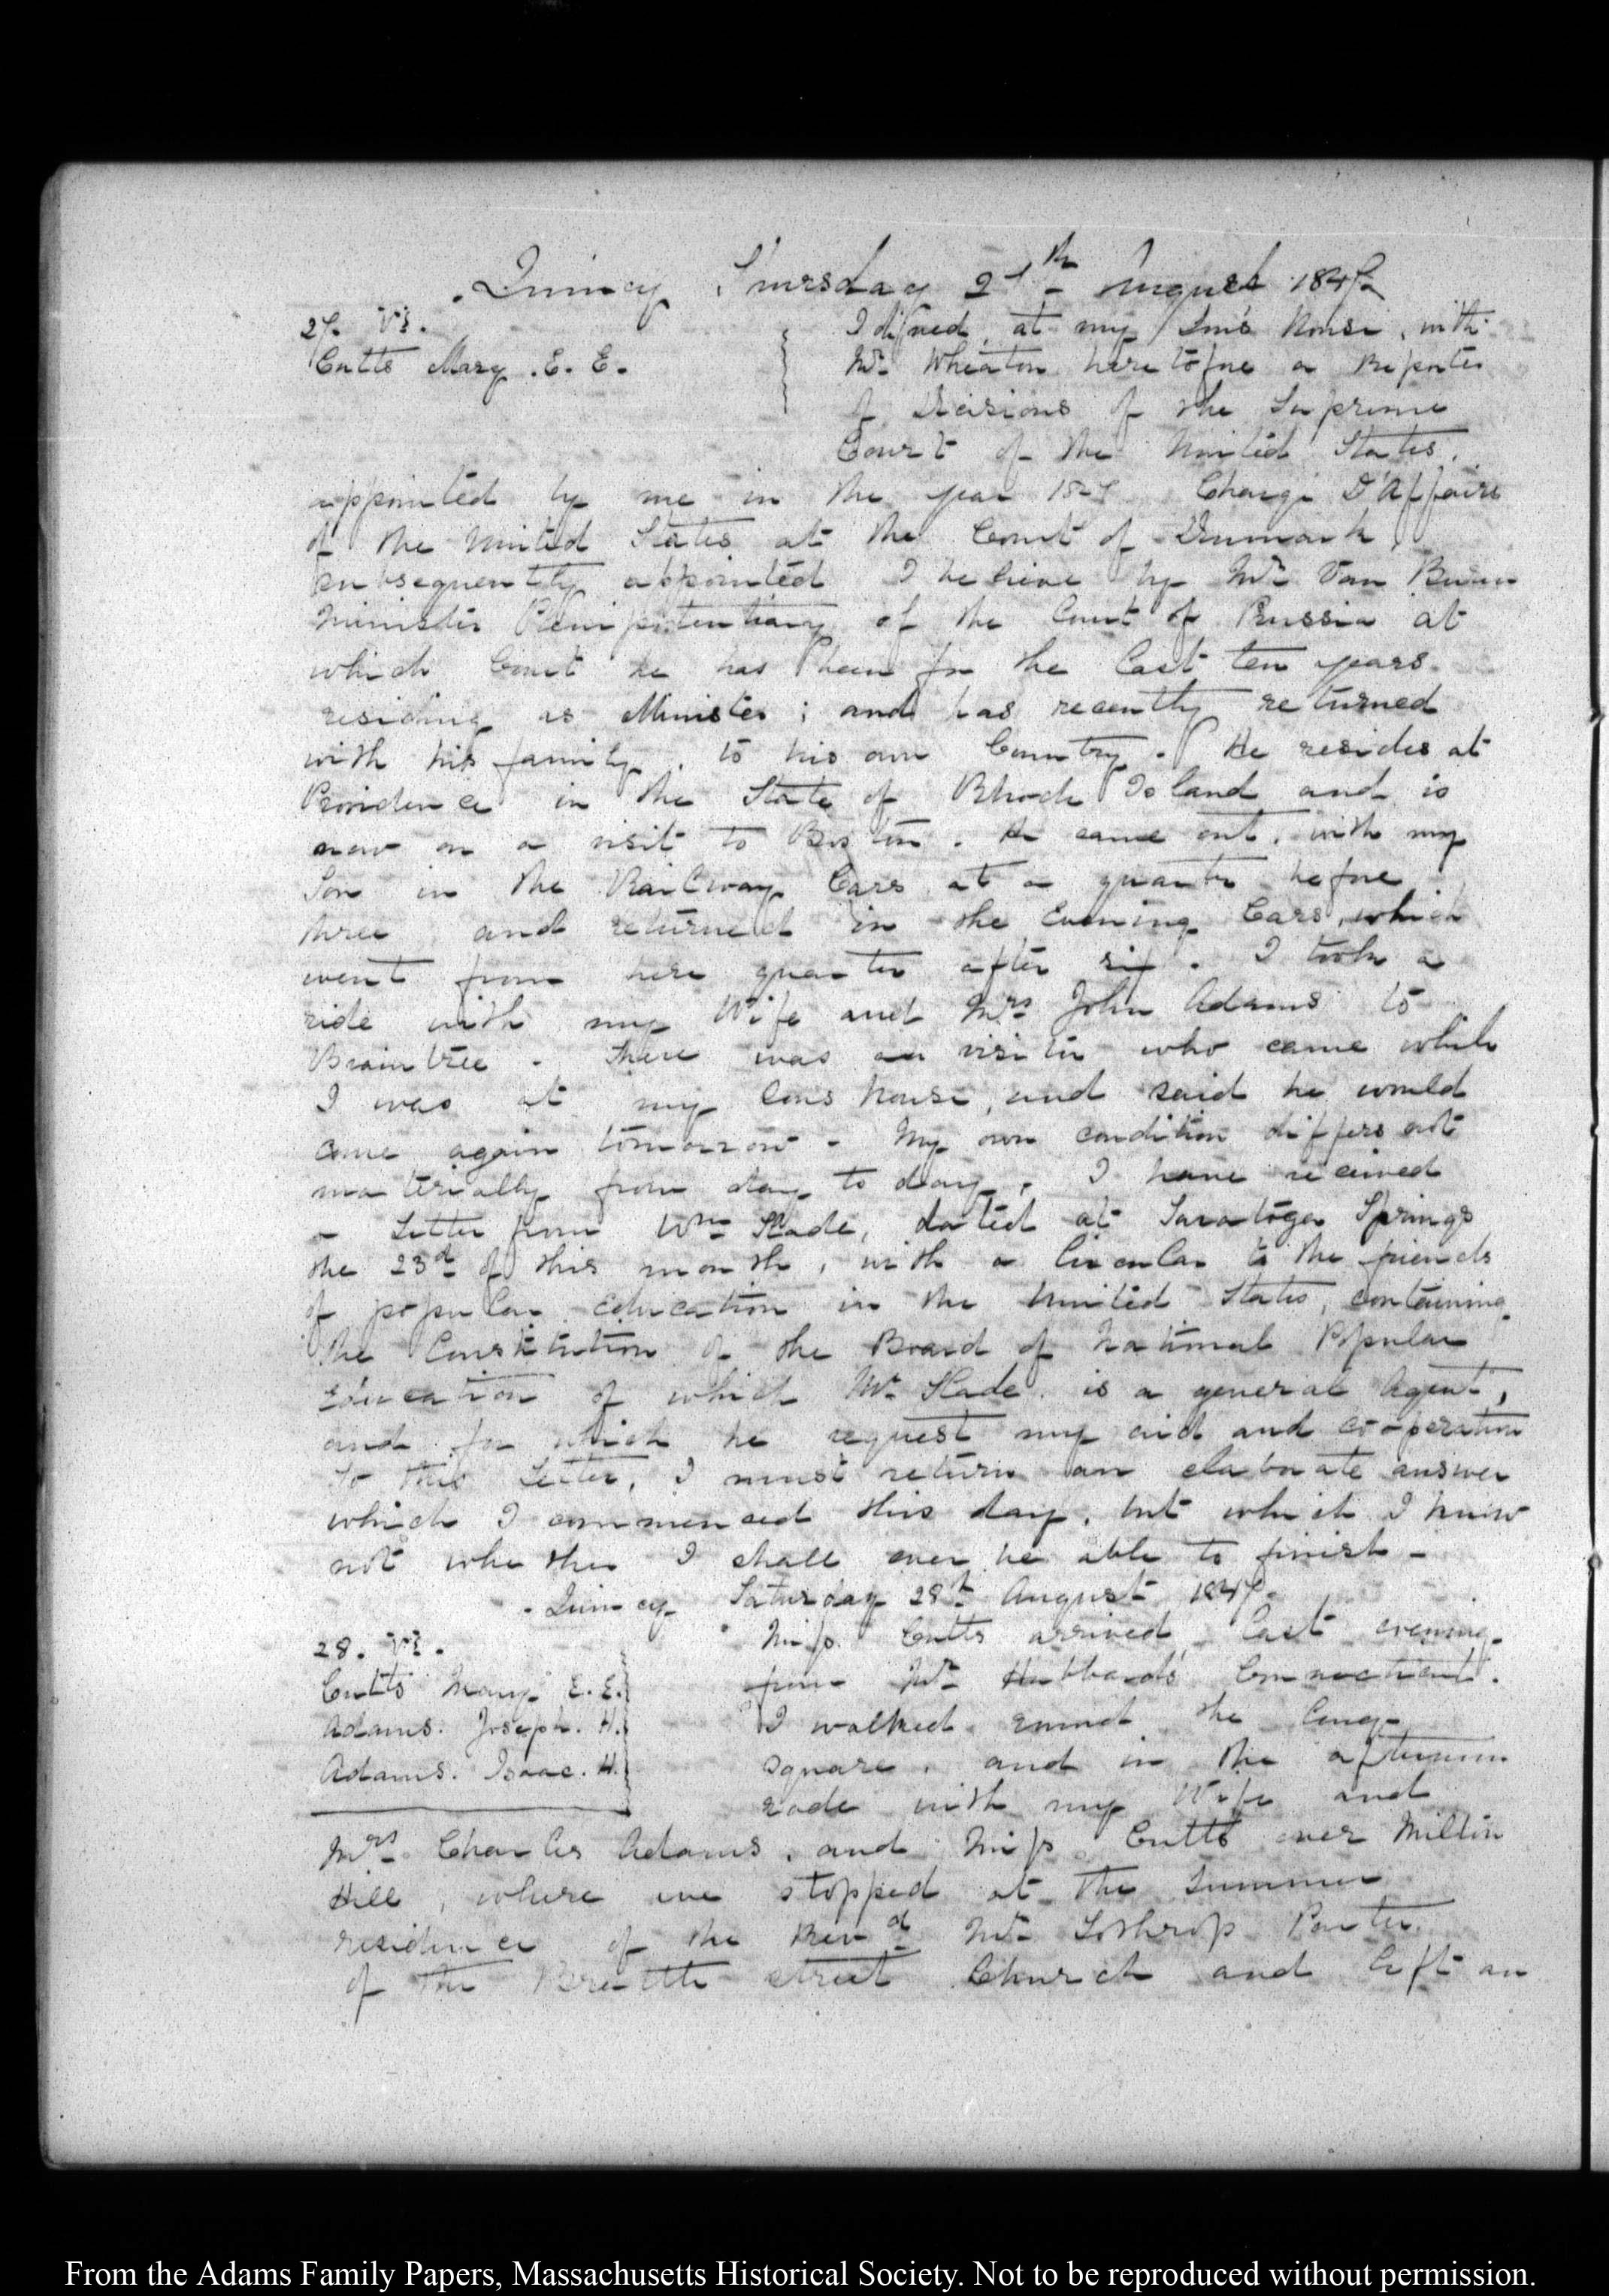 Quincy Thursday 27th August 1847.
27. VI.
Cutts Mary. E. E.
I dined, at my Son's House, with
Mr Wheaton heretofore a Reporter
of Decisions of the Supreme
Court of the United States.
appointed by me in the year 1827 Chargé D'Affaires
of the United States at the Court of Denmark,
subsequently appointed I believe by Mr Van Buren
Minister Plenipotentiary at the Court of Prussia at
which Court he has been for the last ten years
residing as Minister; and has recently returned
with his family, to his own Country. He resides at
Providence in the State of Rhode Island and is
now on a visit to Boston. He came out, with my
Son in the Railway Cars at a quarter before
three and returned in the Evening Cars, which
went from here quarter after six. I took a
ride with my Wife and Mrs John Adams to
Braintree. There was a visitor who came while
I was at my Sons house, and said he would
come again tomorrow - My own condition differs not
materially from day to day. I have received
a Letter from Wm Slade, dated at Saratoga Springs
the 23d of this month, with a Circular to the friends
of popular education in the United States, containing
the Constitution of the Board of National Popular
Education of which Mr Slade, is a general Agent,
and for which he request my aid and cooperation
To this Letter, I must return an elaborate answer
which I commenced this day, but which I know
not whether I shall ever be able to finish -
Quincy Saturday 28th August 1847.
28. VI.
Cutts Mary E. E.
Adams. Joseph. H.
Adams. Isaac. H.
Miss Cutts arrived last evening
from Mr Hubbards Connecticut.
I walked round the long
square, and in the afternoon
rode with my Wife and
Mrs Charles Adams, and Miss Cutts over Milton
Hill, where we stopped at the summer
residence of the Revd Mr Lothrop Pastor
of the Brattle street Church and left an
From the Adams Family Papers, Massachusetts Historical Society. Not to be reproduced without permission.